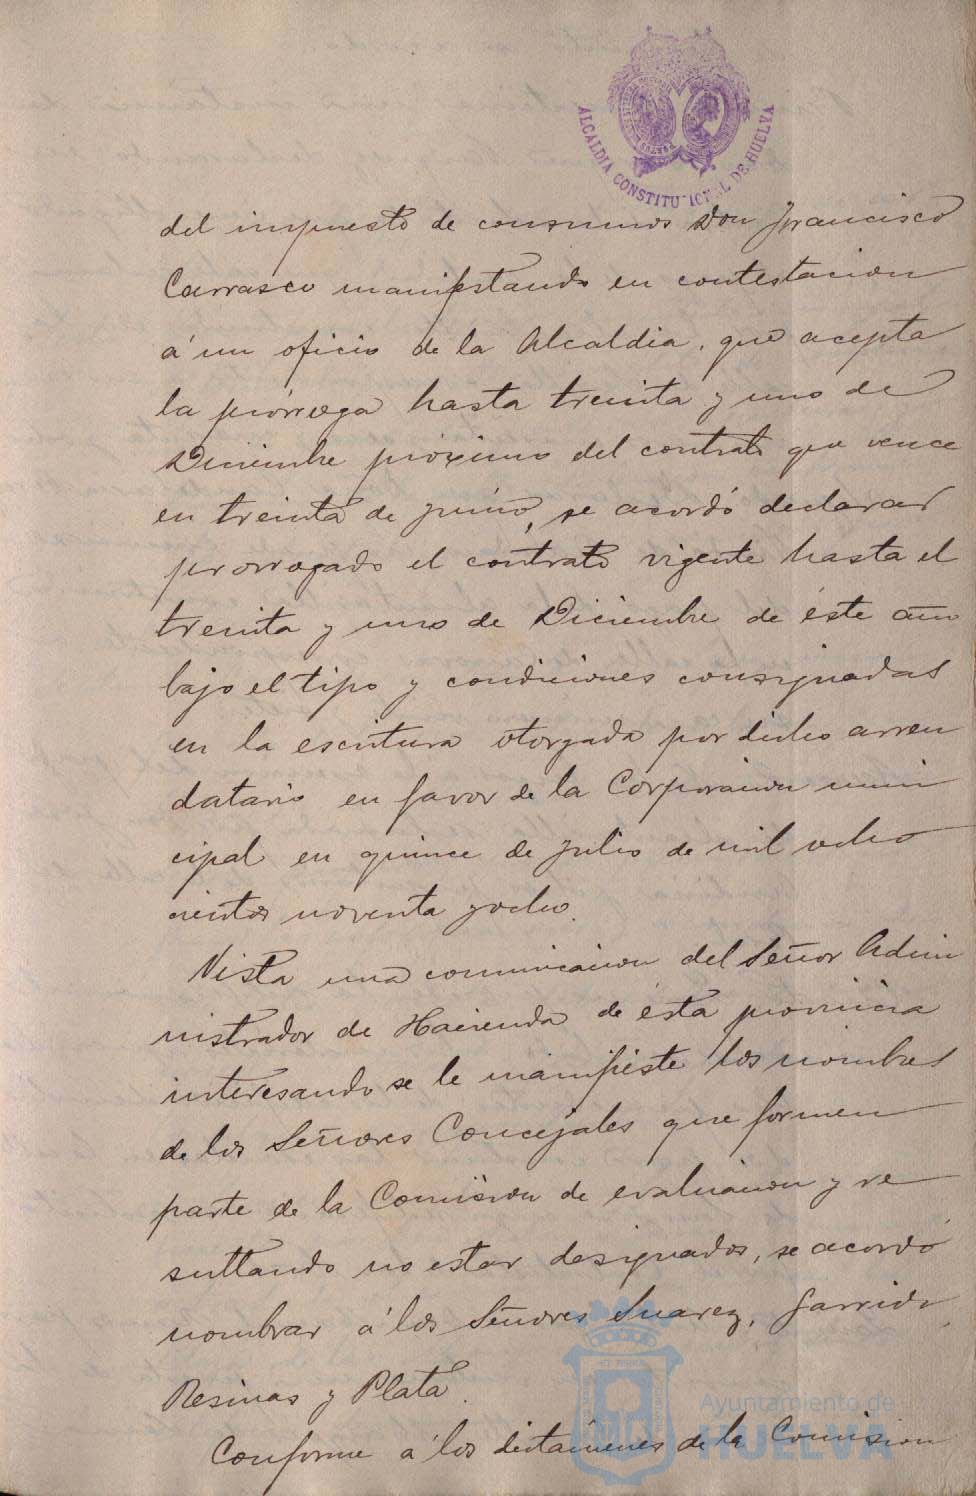 ALCALDIA CONSTITUCIONAL DE HUELVA
del impuesto de consumos Don Francisco
Carrasco manifestando en contestacion
á un oficio de la Alcaldia, que acepta
la prórroga hasta treinta y uno de
Diciembre próximo del contrato que vence
en treinta de Junio, se acordó declarar
prorrogado el contrato vigente hasta el
treinta y uno de Diciembre de éste año
bajo el tipo y condiciones consignadas
en la escritura otorgada por dicho arren
datario en favor de la Corporacion muni
cipal en quince de Julio de mil ocho
cientos noventa y ocho.
Vista una comunicacion del Señor Admi
nistrador de Hacienda de ésta provincia
interesando se le manifieste los nombres
de los Señores Concejales que formen
parte de la Comision de evaluacion y re
sultando no estar designados, se acordó
nombrar á los Señores Suarez, Garrido,
Resinas y Plata.
Conforme á los dictámenes de la Comision
Ayuntamiento de
HUELVA